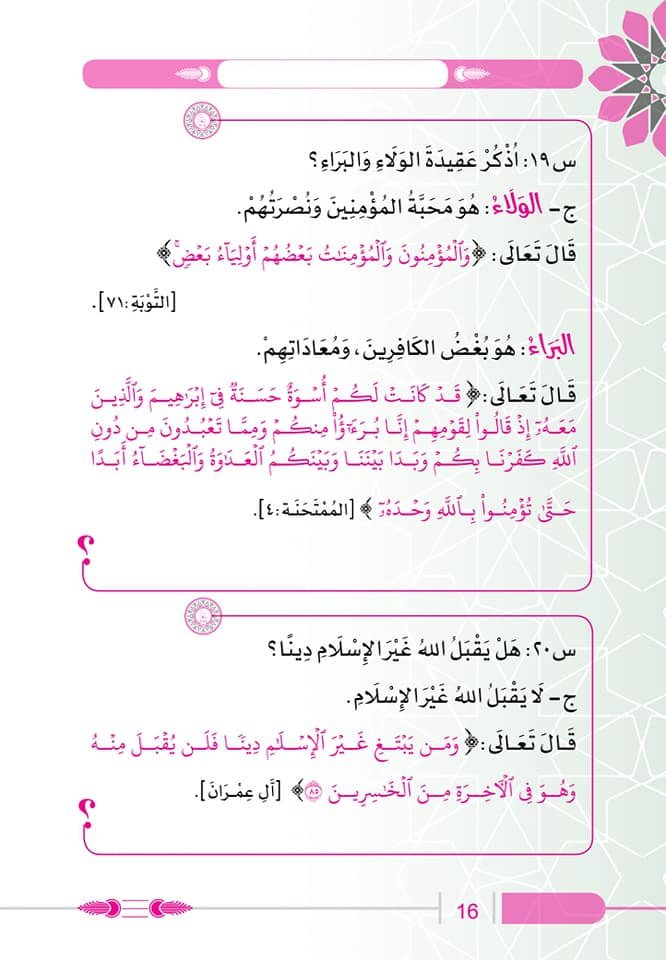 س١٩: اُذْكُرْ عَقِيدَةَ الوَلَاءِ وَالبَرَاءِ؟
ج- الوَلَاءُ: هُوَ مَحَبَّةُ المُؤْمِنِينَ وَنُصْرَتُهُمْ.
قَالَ تَعَالَى: ﴿وَٱلْمُؤْمِنُونَ وَٱلْمُؤْمِنَٰتُ بَعْضُهُمْ أَوْلِيَآءُ بَعْضٖۚ﴾
[التَّوْبَةِ:٧١].
البَرَاءُ: هُوَ بُغْضُ الكَافِرِينَ، وَمُعَادَاتِهِمْ.
قَالَ تَعَالَى: ﴿قَدۡ كَانَتۡ لَكُمۡ أُسۡوَةٌ حَسَنَةٞ فِيٓ إِبۡرَٰهِيمَ وَٱلَّذِينَ
مَعَهُۥٓ إِذۡ قَالُواْ لِقَوۡمِهِمۡ إِنَّا بُرَءَٰٓؤُاْ مِنكُمۡ وَمِمَّا تَعۡبُدُونَ مِن دُونِ
ٱللَّهِ كَفَرۡنَا بِكُمۡ وَبَدَا بَيۡنَنَا وَبَيۡنَكُمُ ٱلۡعَدَٰوَةُ وَٱلۡبَغۡضَآءُ أَبَدًا
حَتَّىٰ تُؤۡمِنُواْ بِٱللَّهِ وَحۡدَهُۥٓ﴾ [المُمْتَحَنَة:٤].
س٢٠: هَلْ يَقْبَلُ اللهُ غَيْرَ الإِسْلَامِ دِينًا؟
ج- لَا يَقْبَلُ اللهُ غَيْرَ الإِسْلَامِ.
قَالَ تَعَالَى: ﴿وَمَن يَبۡتَغِ غَيۡرَ ٱلۡإِسۡلَٰمِ دِينٗا فَلَن يُقۡبَلَ مِنۡهُ
وَهُوَ فِي ٱلۡأٓخِرَةِ مِنَ ٱلۡخَٰسِرِينَ ٨٥﴾ [آلِ عِمْرَانَ].
16